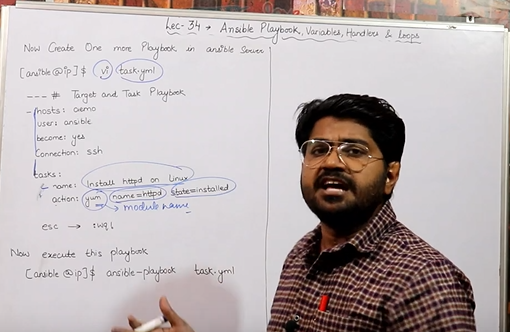 Lec-34 → Ansible Playbook, Variables, Handlers & Loops
Now Create One more Playbook in ansible Server
[ansible@ip]$ vi task.yml
--- # Target and Task Playbook
- hosts: demo
user: ansible
become: yes
Connection: ssh
tasks:
- name: Install httpd on Linux
action: yum name=httpd state=installed
→ module name
esc → :wq!
Now execute this playbook
[ansible@ip]$ ansible-playbook task.yml